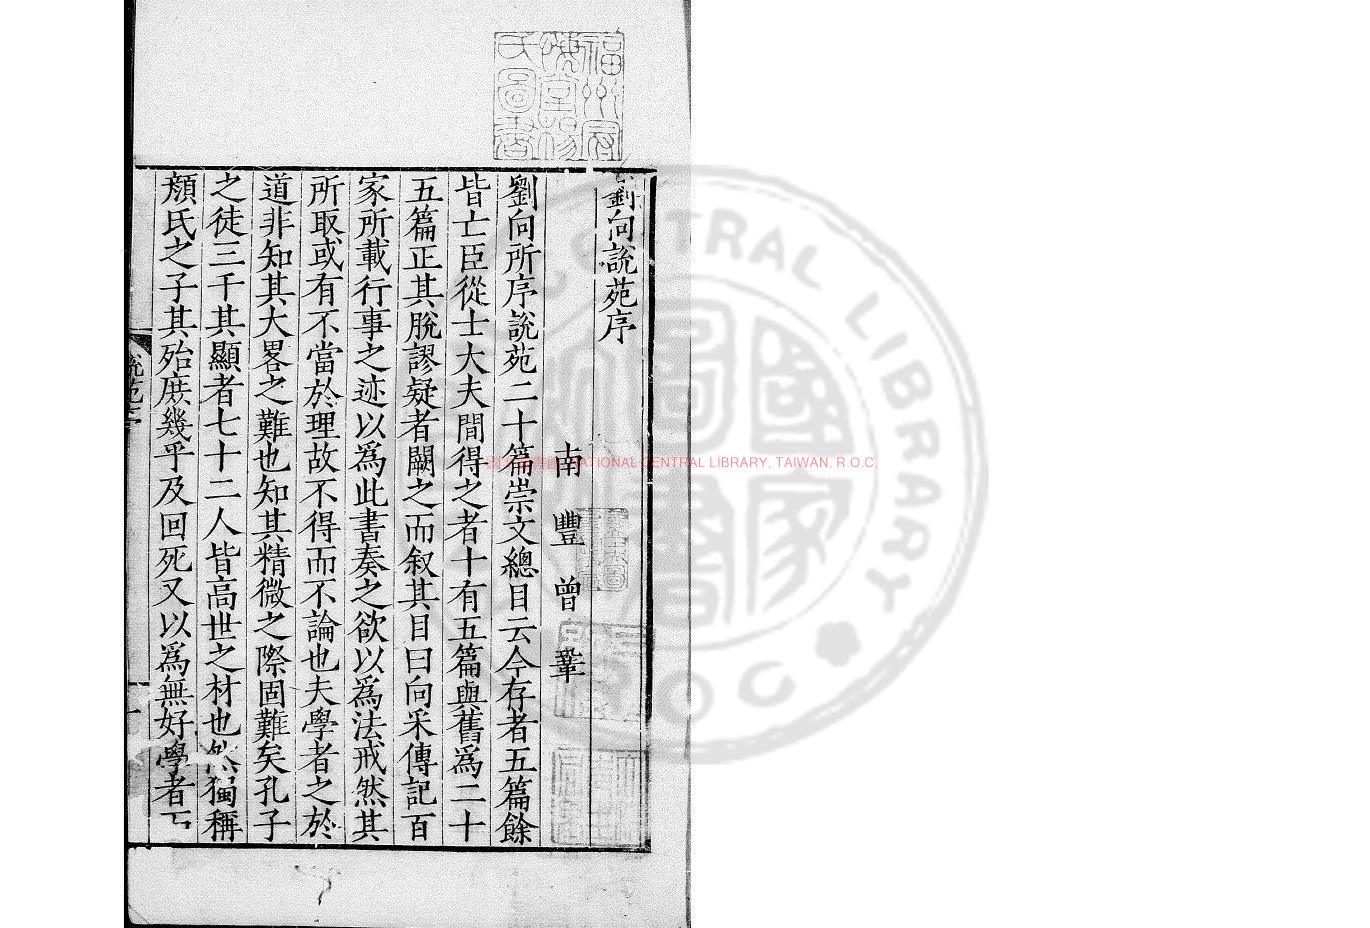 劉向說苑序
南豐曾鞏
劉向所序說苑二十篇崇文總目云今存者五篇餘
皆亡臣從士大夫間得之者十有五篇與舊為二十
五篇正其脫謬疑者闕之而叙其目曰向采傳記百
家所載行事之迹以為此書奏之欲以為法戒然其
所取或有不當於理故不得而不論也夫學者之於
道非知其大畧之難也知其精微之際固難矣孔子
之徒三千其顯者七十二人皆高世之材也然獨稱
顏氏之子其殆庶幾乎及回死又以為無好學者
說苑序
NATIONAL CENTRAL LIBRARY, TAIWAN, R.O.C.
CENTRAL LIBRARY
R.O.C
國家圖書